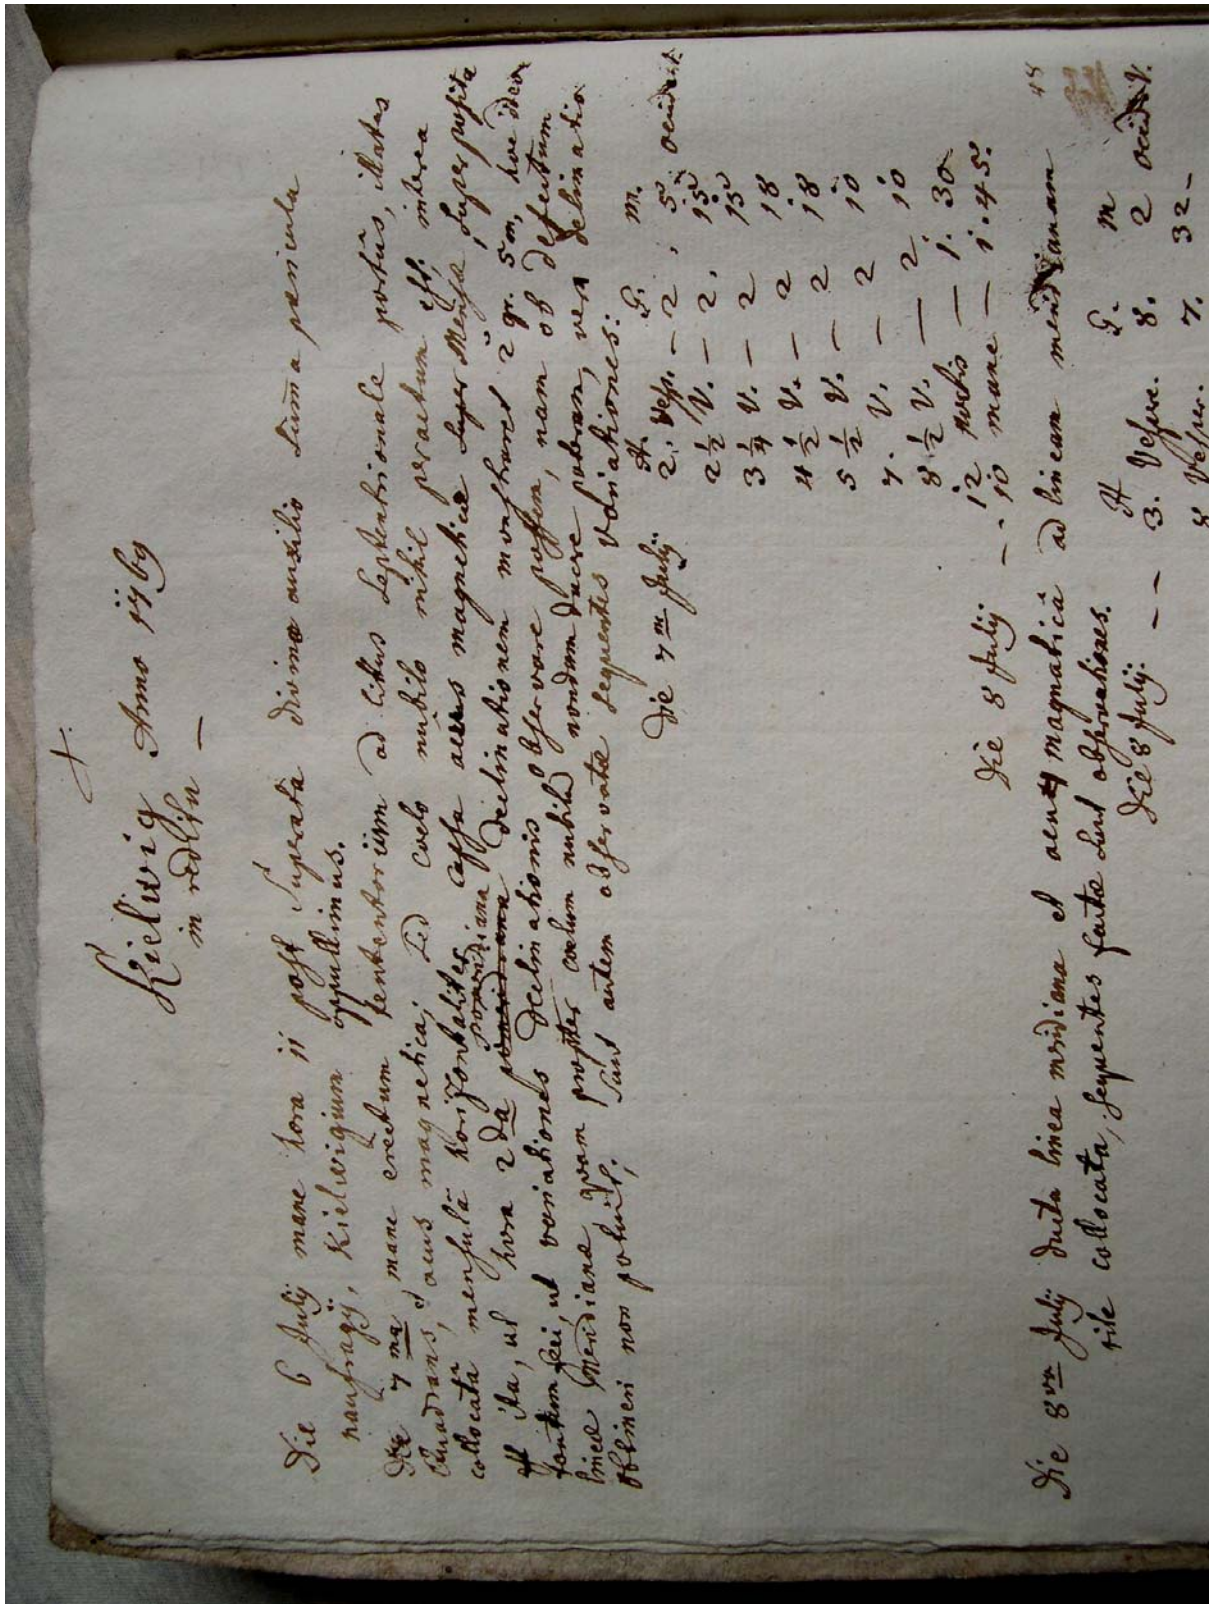 †.
Kielwig Anno 1769
in reditu —
Die 6 Julij mane hora 11 post Superata divino auxilio Summa pericula
naufragij, Kielwigium appulimus.
Die 7 ma mane erectum tentorium ad litus Septentrionale portûs, status
Quadrans, et acus magnetica; Sed coelo nubilo nihil peractum est. interea
collocatâ mensulâ horizontaliter capsa acus magneticæ super Mensæ, superposita
ita, ut hora 2 da pomeridiana declinationem monstraret 2 gr. 5 m, hoc ideo
feci, ut variationes declinationis observare possem, nam ob defectum
lineæ Meridianæ quam propter coelum nubilum nondum ducere potueram, vera declinatio
obtineri non potuit; Sunt autem observatæ sequentes variationes:
H. G. m.
Die 7 m Julij 2. Vesp. — 2 , 5 occident.
2 1/2 V. — 2. 15
3 1/4 V. — 2 15
4 1/2 V. — 2 18
5 1/2 V. — 2 18
7. V. — 2 10
8 1/2 V. — 2. 10
Die 8 Julij - - 12 noctis — 1. 30
10 mane — 1. 45.
48
Die 8 va Julij ducta linea meridiana et acu magnetica ad lineam meridianam
rite collocata, sequentes factæ sunt observationes.
H G. m
Die 8 Julij. — 3. Vespe. 8. 2 occid. V.
— 8 Vesper. 7. 32 -